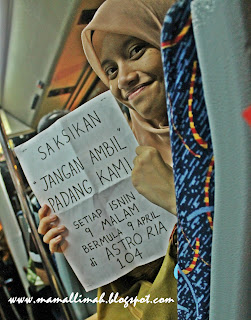 SAKSIKAN
"JANGAN AMBIL
PADANG KAMI"
SETIAP ISNIN
9 MALAM
BERMULA 9 APRIL
di ASTRO RIA
104
www.mamallimah.blogspot.com